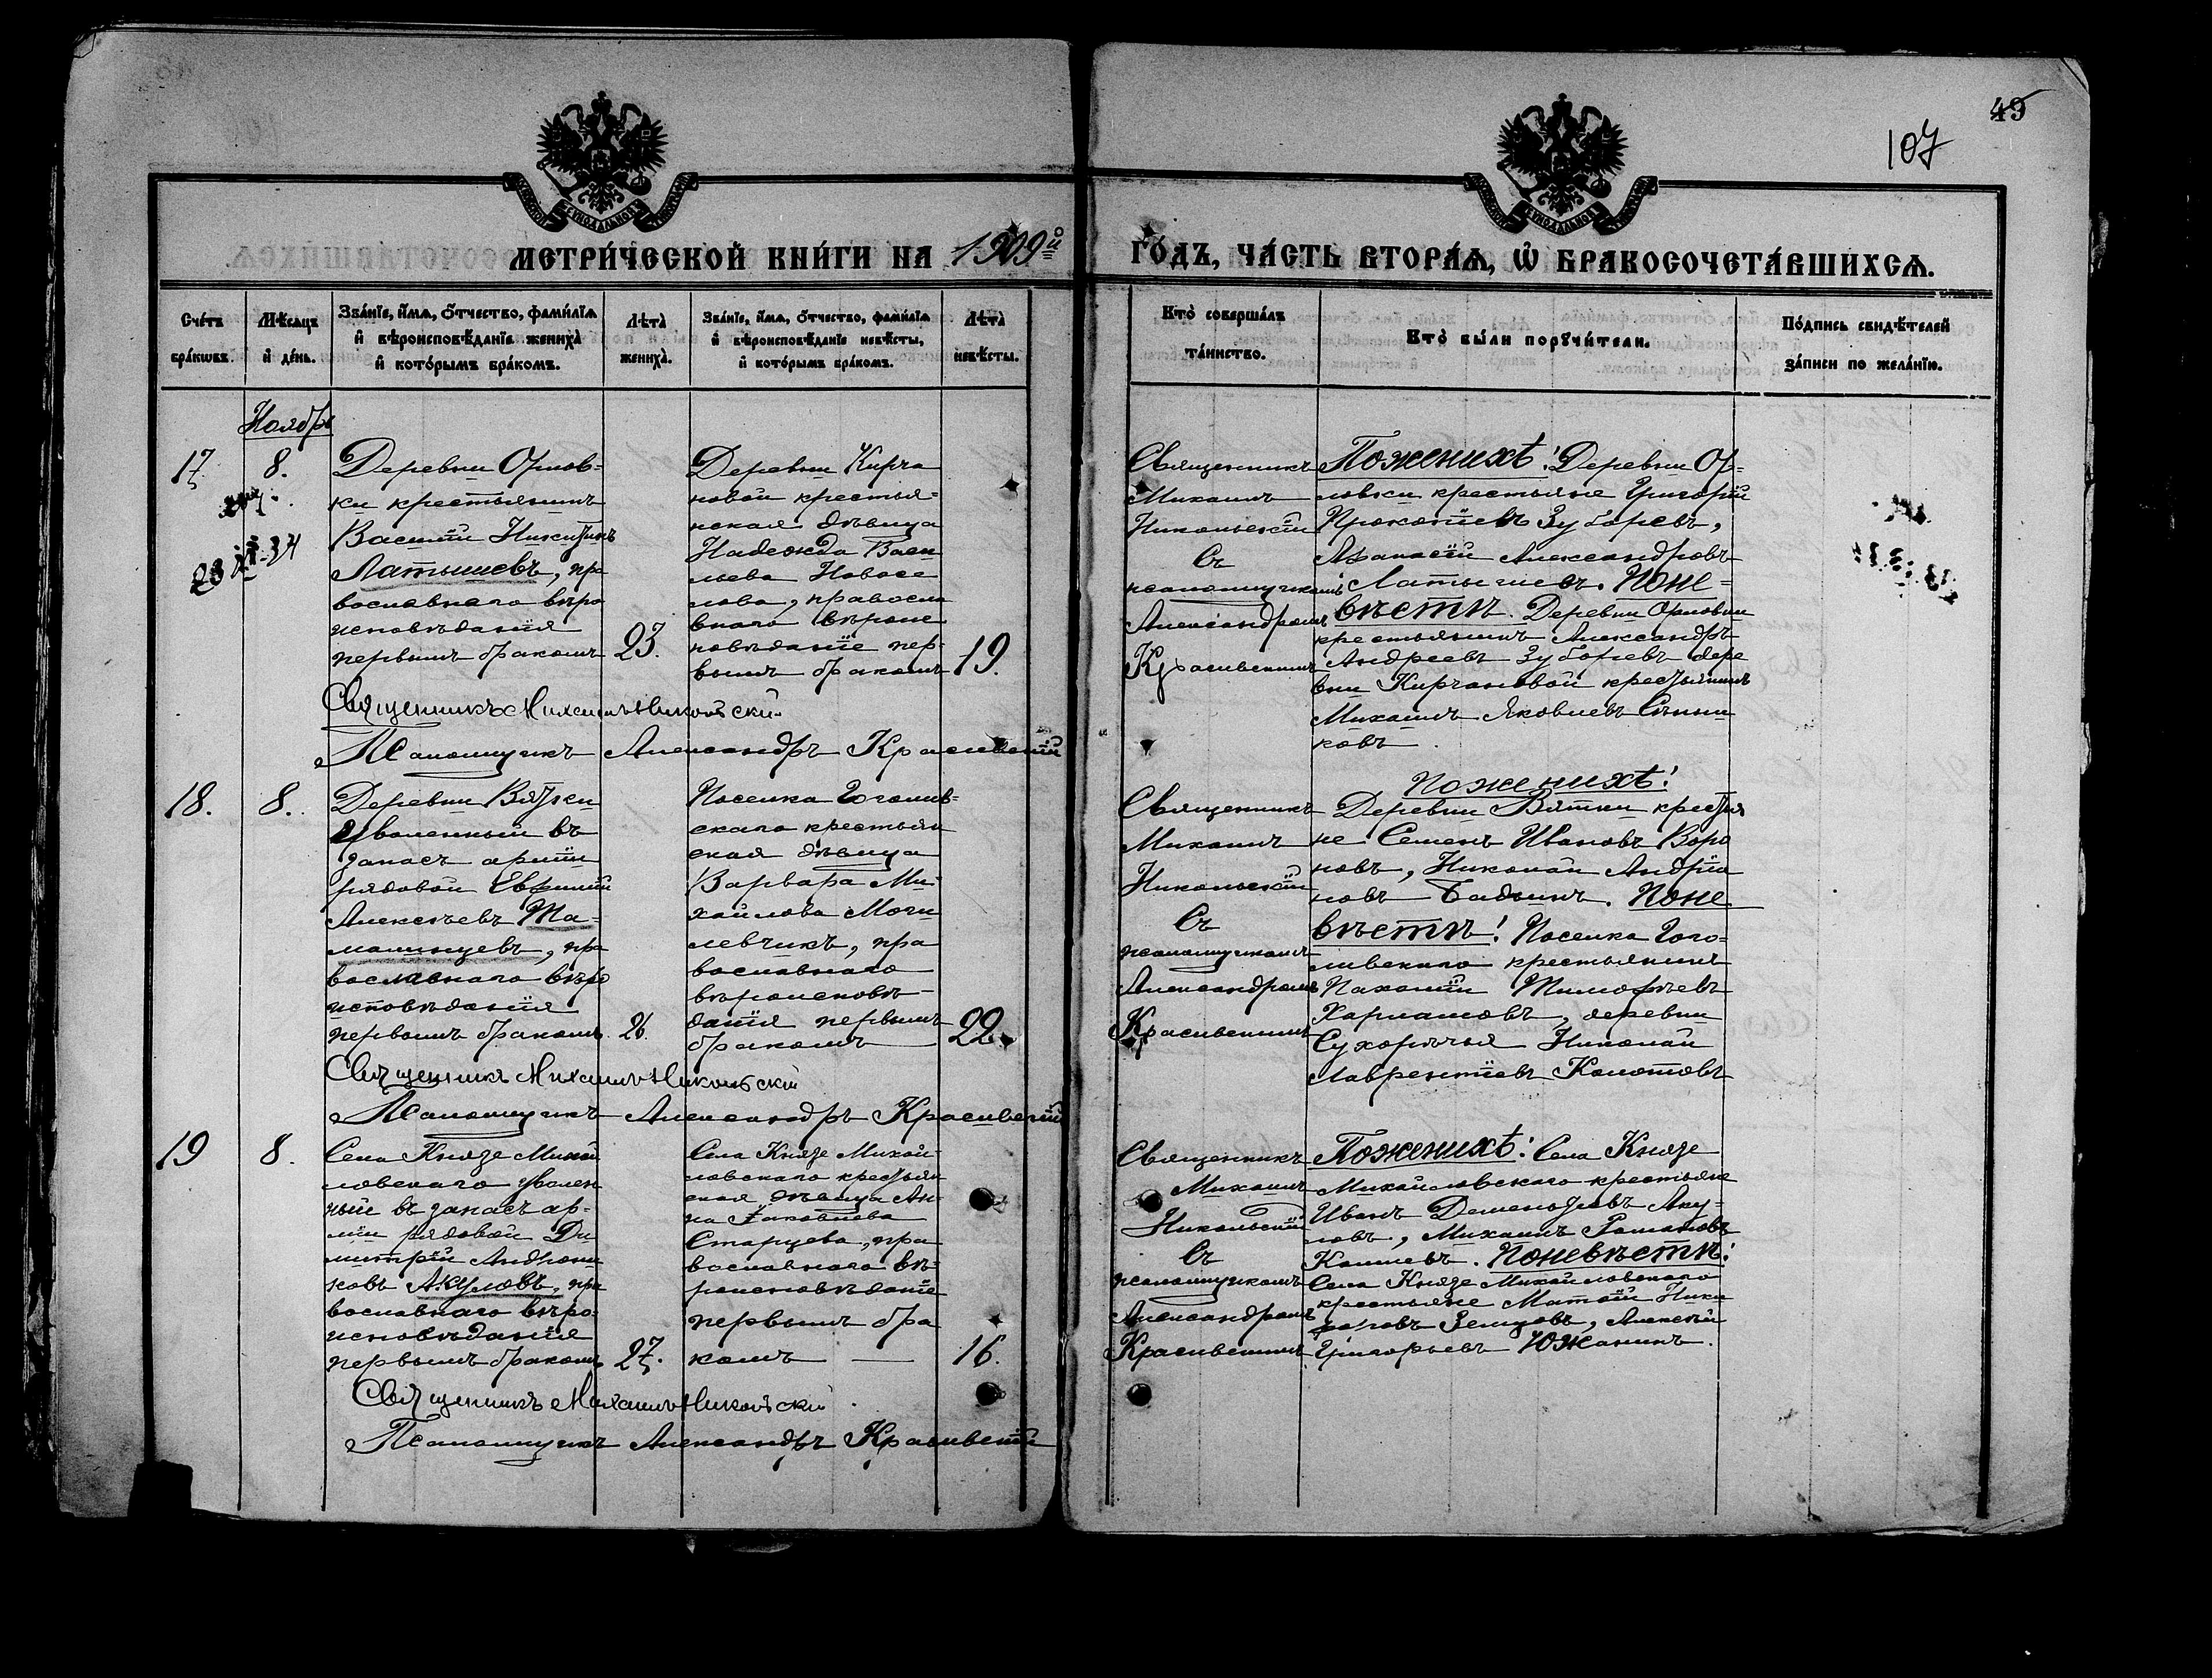 49
107
МЕТРИ́ЧЕСКОЙ КНИ́ГИ НА 1909й
ГО́ДЪ, ЧА́СТЬ ВТОРА́Я, Ѡ БРАКОСОЧЕТА́ВШИХСЯ.
Сче́тъ бра́кѡвъ.
Мѣ́сяцъ и де́нь.
Зва́нїе, и́мя, ѻ́тчество, фами́лїя
и вѣроисповѣ́данїе жениха̀
и кото́рымъ бра́комъ.
Лѣта̀ жениха̀.
Зва́нїе, и́мя, ѻ́тчество, фами́лїя
и вѣроисповѣ́данїе невѣ́сты,
и кото́рымъ бра́комъ.
Лѣта̀ невѣ́сты.
Кто̀ соверша́лъ та́инство.
Кто̀ бы́ли порꙋчи́тели.
По́дпись свидѣ́телей
за́писи по жела́нїю.
Ноябрь
17
8.
23 XI 34
Деревни Орлов=
ки крестьянинъ
Василій Никитинъ
Латышевъ, пра
вославнаго вѣро
исповѣданія
первымъ бракомъ
23.
Деревни Кирча
новой крестья=
нская дѣвица
Надежда Васи
льева Новосе
лова, правосла
внаго вѣроис
повѣданіе пер=
вымъ бракомъ
19.
Священникъ
Михаилъ
Никольскій
Съ
псаломщикомъ
Александромъ
Красивскимъ
По женихѣ: Деревни Ор=
ловки крестьяне Григорій
Прокопіевъ Зубаревъ,
Аѳанасій Александровъ
Латышевъ. По не=
вѣстѣ. Деревни Орловки
крестьянинъ Александръ
Андреевъ Зубаревъ дере
вни Кирчановой крестьянинъ
Михаилъ Яковлевъ
ковъ.
Священникъ Михаилъ Никольскій
Псаломщикъ Александръ Красивскій
18.
8.
Деревни Вятки
Уволенный въ
запасъ арміи
рядовой Евфимій
Алексѣевъ Та=
маницевъ, пра
вославнаго вѣро
исповѣданія
первымъ бракомъ.
26.
Поселка Гоголев=
скаго крестьян
ская дѣвица
Варвара Ми=
хайлова Моги
левчикъ, пра
вославнаго
вѣроисповѣ-
данія первымъ
бракомъ
22.
Священникъ
Михаилъ
Никольскій
Съ
псаломщикомъ
Александромъ
Красивскимъ
По женихѣ:
Деревни Вятки крестья
не Семенъ Ивановъ Воро
новъ, Николай Андрія
новъ Бадьинъ. По не
вѣстѣ: Поселка Гого=
левскаго крестьянинъ
Пахомій Тимофѣевъ
Харламовъ, деревни
Сухорѣчья Николай
Лаврентіевъ Колотовъ
Священникъ Михаилъ Никольскій
Псаломщикъ Александръ Красивскій
19
8.
Села Князе Михай
ловскаго уволен
ный въ запасъ ар=
міи рядовой Ди
митрій Андрони
ковъ Акуловъ, пра
вославнаго вѣро=
исповѣданіе
первымъ бракомъ
27.
Села Князе Михай=
ловскаго крестьян
ская дѣвица Ан=
на Іаковлева
Старцева, пра
вославнаго вѣ=
роисповѣданіе
первымъ бра
комъ —
16.
Священникъ
Михаилъ
Никольскій
Съ
псаломщикомъ
Александромъ
Красивскимъ
По женихѣ: Села Князе
Михайловскаго крестьяне
Иванъ Дементьевъ Аку=
ловъ, Михаилъ Романовъ
По невѣстѣ:
Села Князе Михайловскаго
крестьяне Матѳій Ники
форовъ Земцовъ, Алексѣй
Григорьевъ Южанинъ.
Священникъ Михаилъ Никольскій
Псаломщикъ Александръ Красивскій